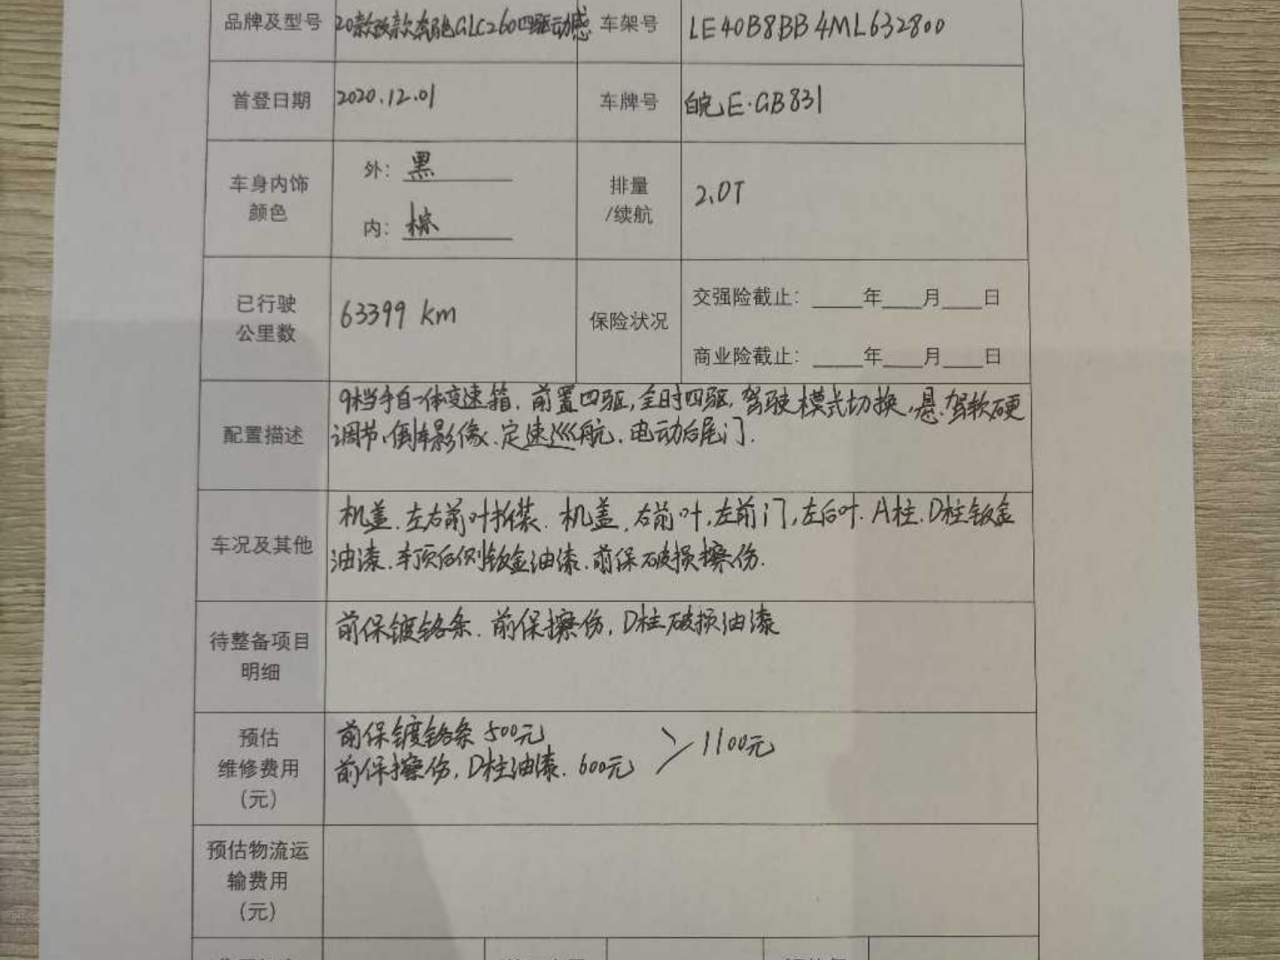 品牌及型号 20款改款奔驰GLC260四驱动感 车架号 LE40B8BB4ML632800
首登日期 2020.12.01 车牌号 皖E·GB831
车身内饰
颜色
外: 黑
内: 棕
排量
/续航
2.0T
已行驶
公里数
63399 km
保险状况
交强险截止: ____年___月___日
商业险截止: ____年___月___日
配置描述
9档手自一体变速箱、前置四驱,全时四驱,驾驶模式切换,悬、驾软硬
调节、倒车影像、定速巡航、电动后尾门.
车况及其他
机盖、左右前叶拆装、机盖、右前叶,左前门,左后叶、A柱、D柱钣金
油漆、车顶后侧钣金油漆、前保破损擦伤.
待整备项目
明细
前保镀铬条、前保擦伤,D柱破损油漆
预估
维修费用
(元)
前保镀铬条 500元
前保擦伤,D柱油漆、600元
1100元
预估物流运
输费用
(元)